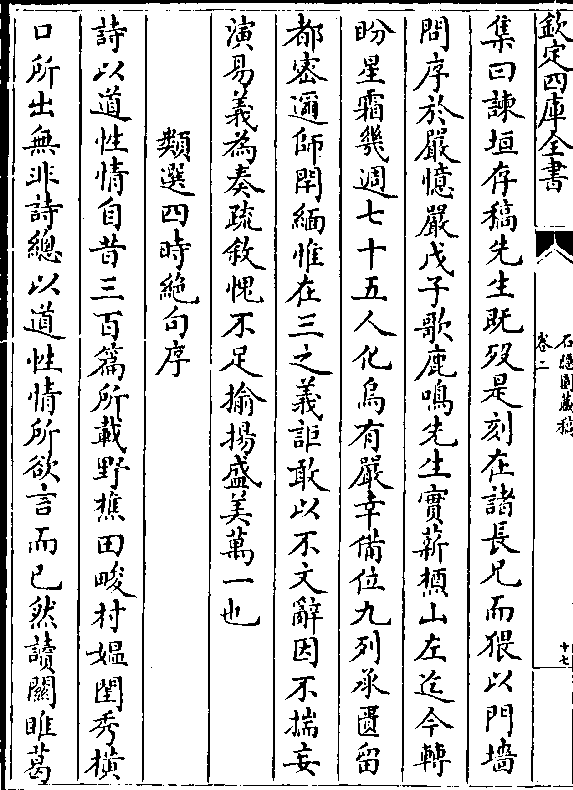 欽定四庫全書
石隱園藏稿
卷二
十七
集曰諫垣存稿先生既歿是刻在諸長兄而猥以門墻
問序於嚴憶嚴戊子歌鹿鳴先生實薪槱山左迄今轉
盼星霜幾週七十五人化烏有嚴幸備位九列承匱留
都密邇師門緬惟在三之義詎敢以不文辭因不揣妄
演易義為奏疏敘愧不足揄揚盛美萬一也
類選四時絶句序
詩以道性情自昔三百篇所載野樵田畯村媪閨秀橫
口所出無非詩總以道性情所欲言而已然讀關雎葛